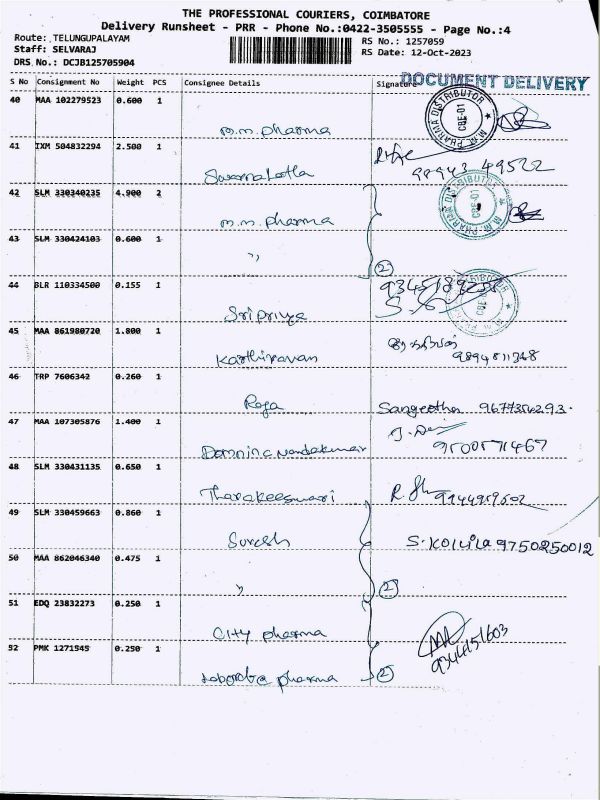 THE PROFESSIONAL COURIERS, COIMBATORE
Delivery Runsheet - PRR - Phone No.:0422-3505555 - Page No.:4
Route: TELUNGUPALAYAM RS No.: 1257059
Staff: SELVARAJ RS Date: 12-Oct-2023
DRS No.: DCJB125705904
S No Consignment No Weight PCS Consignee Details Signature DOCUMENT DELIVERY
40 MAA 102279523 0.600 1
M.M. PHARMA DISTRIBUTOR CBE-01
m.m. pharma
41 IXM 504832294 2.500 1
Swarnalatha
42 SLM 330340235 4.900 2
M.M. PHARMA DISTRIBUTOR CBE-01
m.m. pharma
43 SLM 330424103 0.600 1
" 2
44 BLR 110334500 0.155 1
Sri priya
45 MAA 861980720 1.800 1
Karthiravan 9894811368
46 TRP 7606342 0.260 1
Roja Sangeetha
47 MAA 107305876 1.400 1
9500571467
48 SLM 330431135 0.650 1
Tharakeeswari
49 SLM 330459663 0.860 1
Suresh S. KOKILA 9750250012
50 MAA 862046340 0.475 1
" 2
51 EDQ 23832273 0.250 1
City pharma 9344151603
52 PMK 1271545 0.250 1
pharma 2